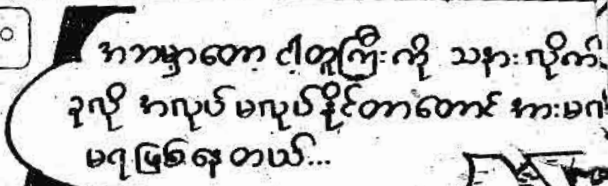 ဘာမှာတော့ ငါ့တူကြီးကို သနားလိုက်
ခုလို အလုပ်မလုပ်နိုင်တာတောင် အားမ
မရဖြစ်နေတယ်...